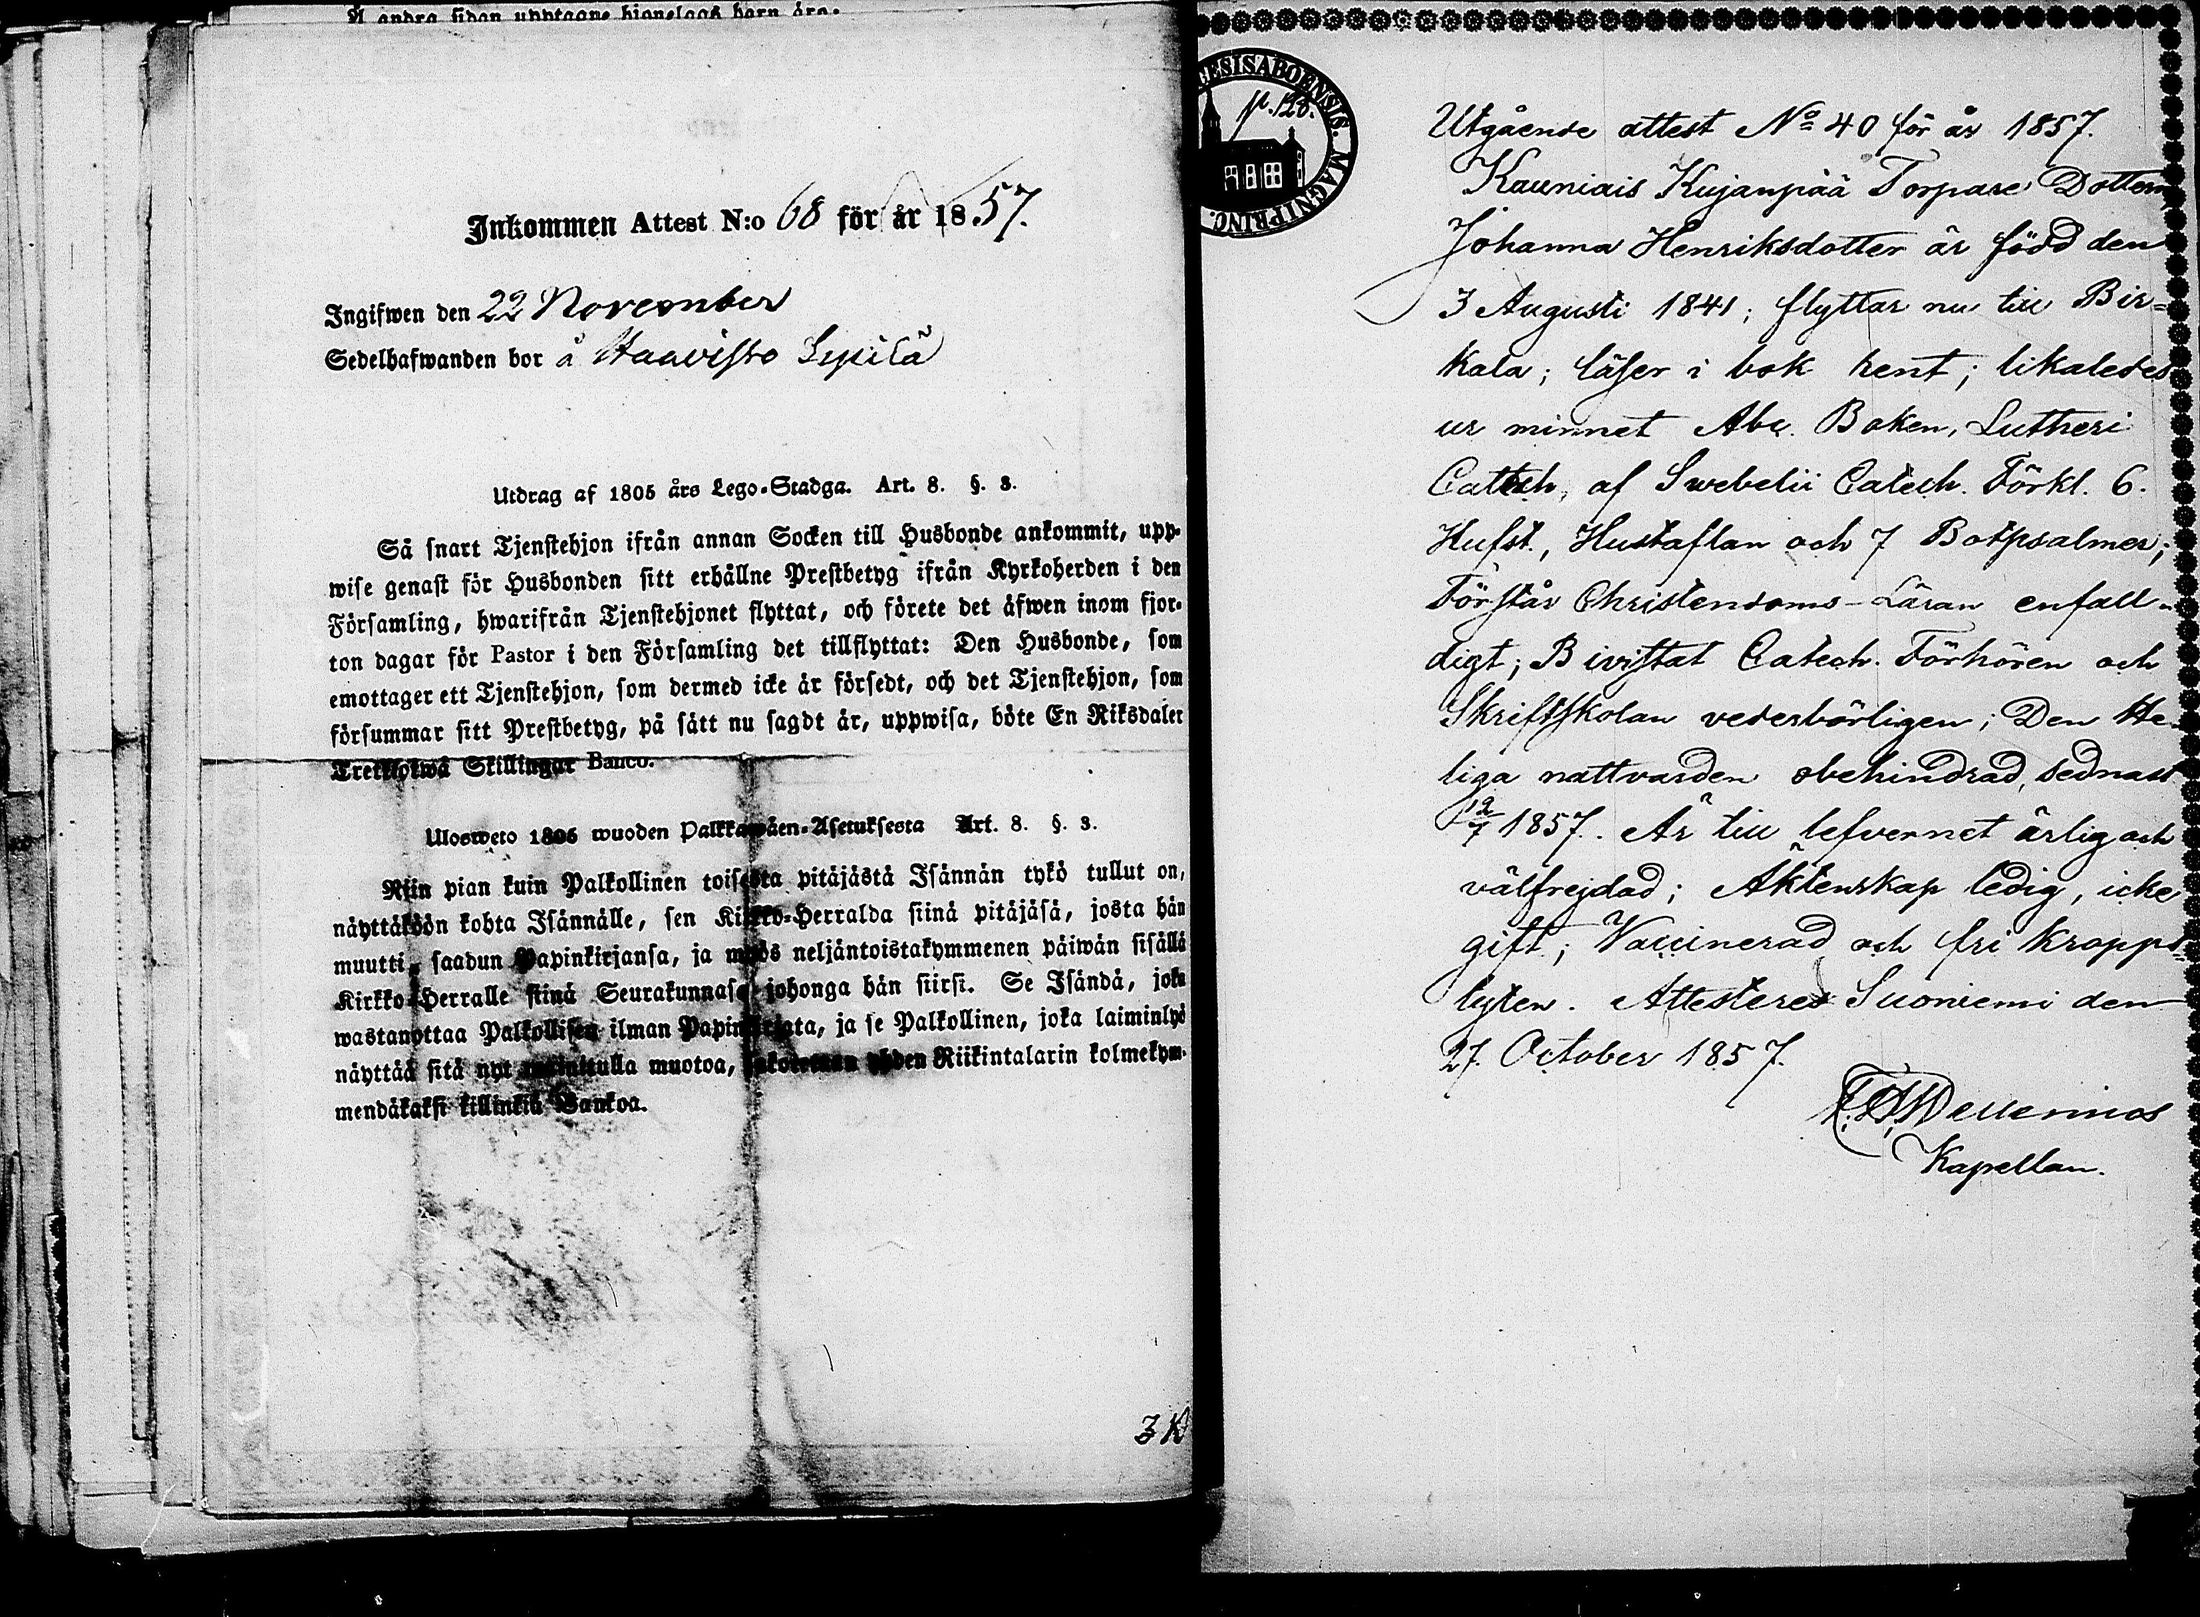 Å andra sidan upptagne hjonelags barn äro:
Inkommen Attest N:o 68 för år 1857.
Ingifwen den 22 November
Sedelhafwanden bor å Haavisto Sepilä
Utdrag af 1805 års Lego-Stadga. Art. 8. §. 3.
Så snart Tjenstehjon ifrån annan Socken till Husbonde ankommit, upp-
wise genast för Husbonden sitt erhållne Prestbetyg ifrån Kyrkoherden i den
Församling, hwarifrån Tjenstehjonet flyttat, och förete det äfwen inom fjor-
ton dagar för Pastor i den Församling det tillflyttat: Den Husbonde, som
emottager ett Tjenstehjon, som dermed icke är försedt, och det Tjenstehjon, som
försummar sitt Prestbetyg, på sätt nu sagdt är, uppwisa, böte En Riksdaler
Trettiotwå Skillingar Banco.
Ulosweto 1805 wuoden Palkkawäen-Asetuksesta Art. 8. §. 3.
Niin pian kuin Palkollinen toisesta pitäjästä Isännän tykö tullut on,
näyttäköön kohta Isännälle, sen Kirkko-Herralda siinä pitäjäsä, josta hän
muutti, saadun Papinkirjansa, ja myös neljäntoistakymmenen päiwän sisällä
Kirkko-Herralle siinä Seurakunnasa johonga hän siirsi. Se Isändä, joka
wastanottaa Palkollisen ilman Papinkirjata, ja se Palkollinen, joka laiminlyö
näyttää sitä nyt muotoa, yhden Riikintalarin kolmekym-
mendäkaksi killinkiä Bankoa.
3 K
p. 128.
ESISABOENSIS. MAGNIPRINC.
Utgående attest No 40 för år 1857.
Kauniais Kujanpää Torpare Dottern
Johanna Henriksdotter är född den
3 Augusti 1841; flyttar nu till Bir-
kala; läser i bok rent; likaledes
ur minnet Abc. Boken, Lutheri
Catech, af Swebelii Catech. Förkl. 6.
Hufst., Hustaflan och 7 Botpsalmer;
Förstår Christendoms-Läran enfall-
digt; Bivistat Catech. Förhören och
Skriftskolan vederbörligen; Den He-
liga nattvarden obehindrad, sednast
12/7 1857. Är till lefvernet ärlig och
välfrejdad; Äktenskap ledig, icke
gift; Vaccinerad och fri kropps-
lyten. Attesteres Suoniemi den
27. October 1857.
Kapellan.